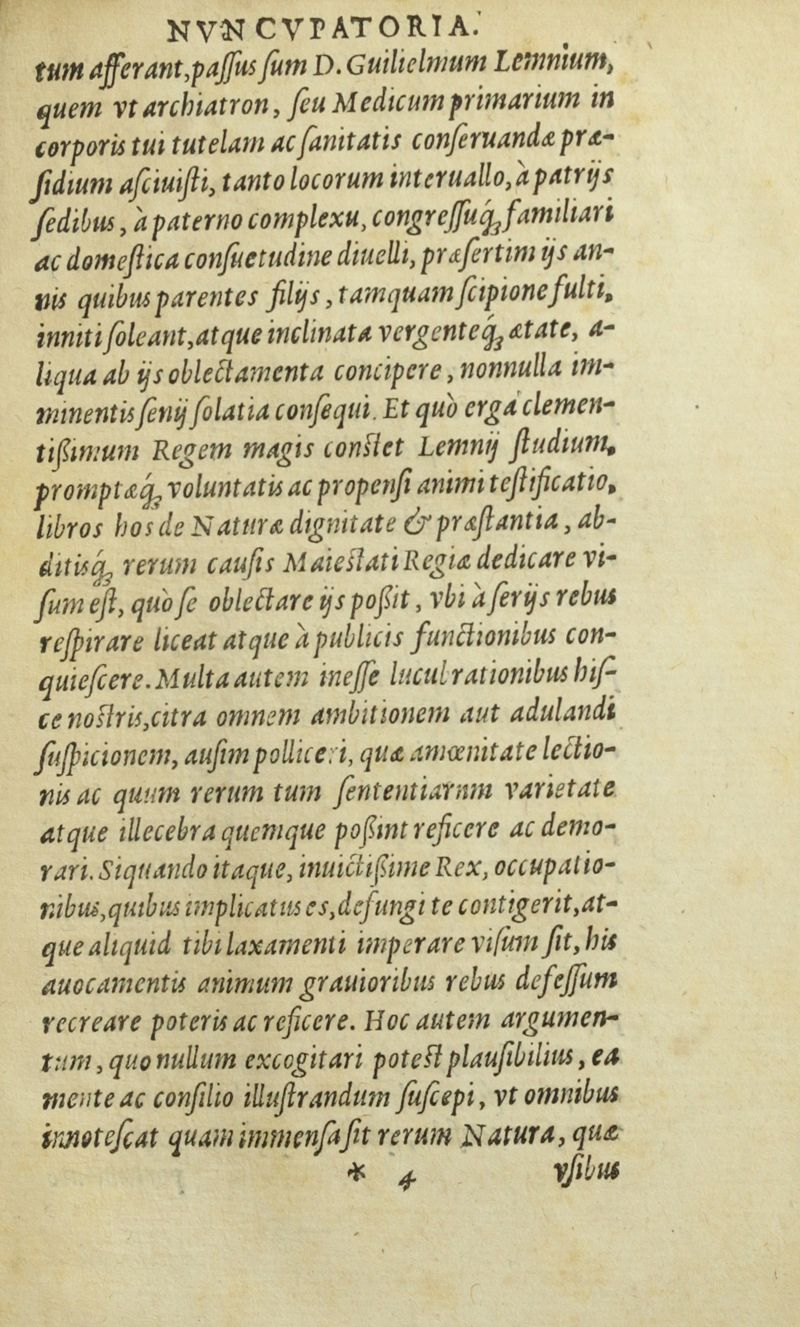 NVNCVPATORIA.
tum afferant, passus sum D. Guilielmum Lemnium,
quem vt archiatron, seu Medicum primarium in
corporis tui tutelam ac sanitatis conseruandæ præ-
sidium asciuisti, tanto locorum interuallo, à patrijs
sedibus, à paterno complexu, congressuq́ꝫ familiari
ac domestica consuetudine diuelli, præsertim ijs an-
nis quibus parentes filijs, tamquam scipione fulti,
inniti soleant, atque inclinata vergenteq́ꝫ ætate, a-
liqua ab ijs oblectamenta concipere, nonnulla im-
minentis senij solatia consequi. Et quò erga clemen-
tißimum Regem magis constet Lemnij studium,
promptæq́ꝫ voluntatis ac propensi animi testificatio,
libros hos de Naturæ dignitate & præstantia, ab-
ditisq́ꝫ rerum causis Maiestati Regiæ dedicare vi-
sum est, quò se oblectare ijs poßit, vbi à serijs rebus
respirare liceat atque à publicis functionibus con-
quiescere. Multa autem inesse lucubrationibus his-
ce nostris, citra omnem ambitionem aut adulandi
suspicionem, ausim polliceri, quæ amœnitate lectio-
nis ac quum rerum tum sententiarnm varietate
atque illecebra quemque poßint reficere ac demo-
rari. Siquando itaque, inuictißime Rex, occupatio-
nibus, quibus implicatus es, defungi te contigerit, at-
que aliquid tibi laxamenti imperare visum sit, his
auocamentis animum grauioribus rebus defessum
recreare poteris ac reficere. Hoc autem argumen-
tum, quo nullum excogitari potest plausibilius, ea
mente ac consilio illustrandum suscepi, vt omnibus
innotescat quam immensa sit rerum Natura, quæ
* 4 vsibus